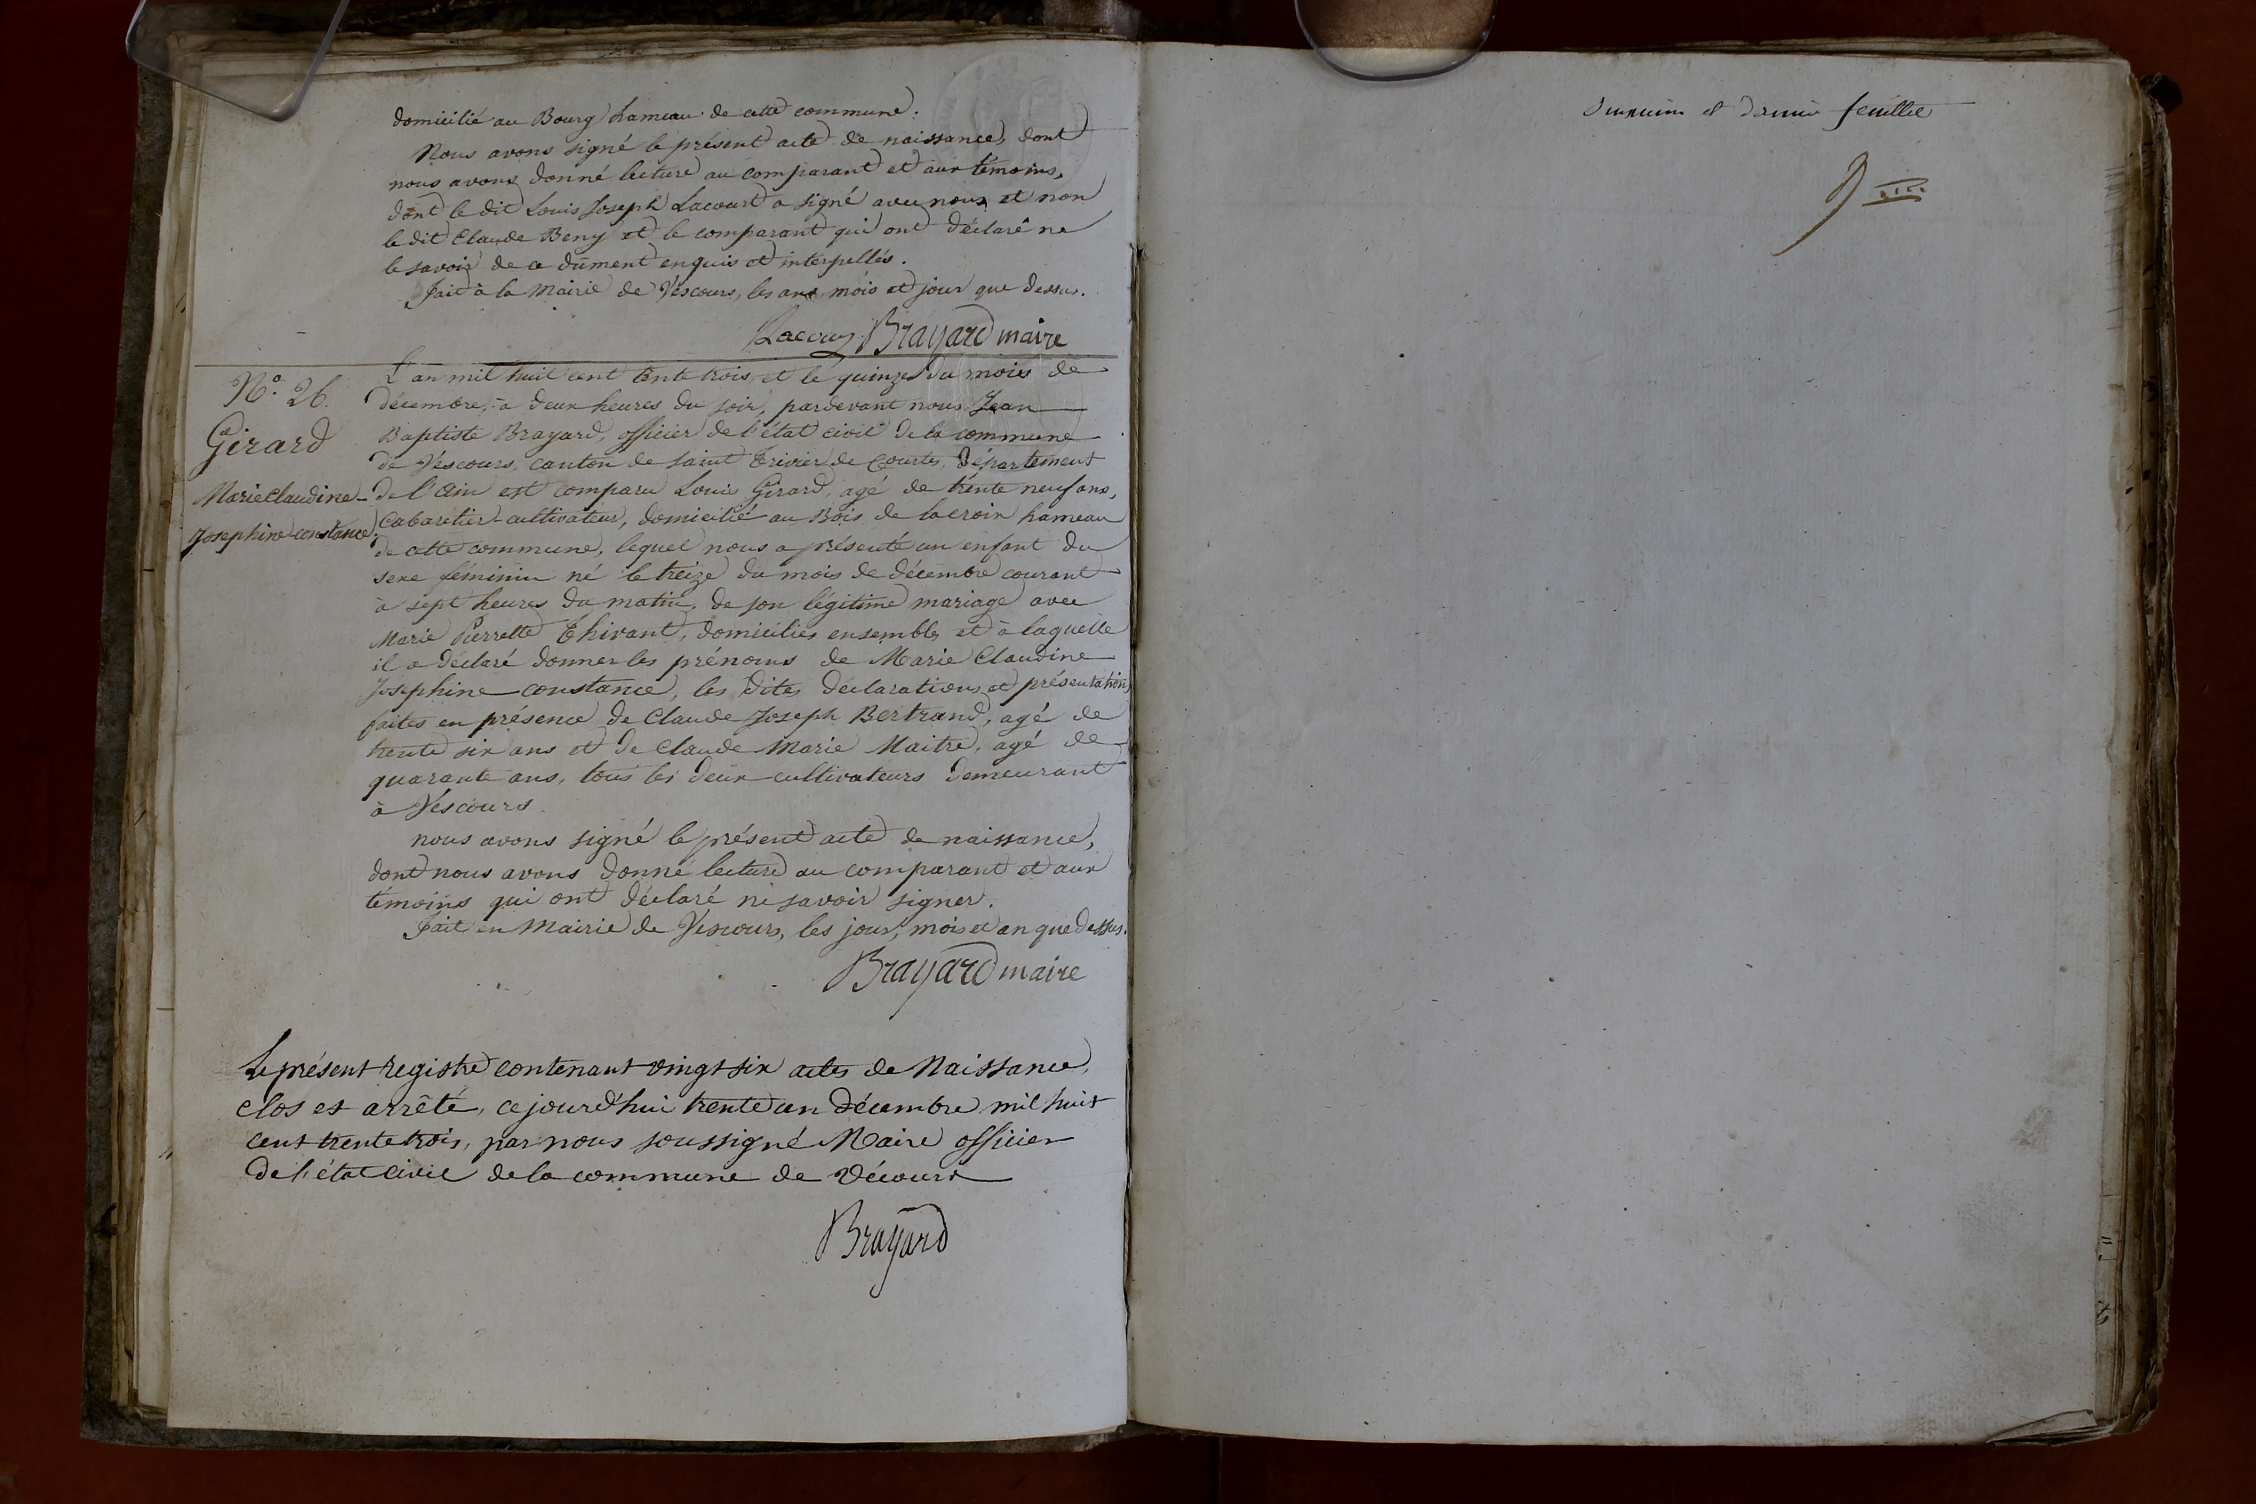 domicilié au Bourg hameau de cette commune.
Nous avons signé le présent acte de naissance, dont
nous avons donné lecture au comparant et aux témoins,
dont le dit Louis Joseph Lacourt a signé avec nous et non
le dit Claude Beny et le comparant qui ont déclaré ne
le savoir de ce dûment enquis et interpellés.
Fait à la Mairie de Vescours, les ans mois et jour que dessus.
Lacour Brayard maire
N.o 26.
Girard
Marie Claudine
Josephine constance
L'an mil huit cent trente trois et le quinze du mois de
décembre, à deux heures du soir, pardevant nous Jean
Baptiste Brayard, officier de l'état civil de la commune
de Vescours, canton de saint Trivier de Courtes, Département
de l'Ain est comparu Louis Girard, agé de trente neuf ans,
Cabaretier-cultivateur, domicilié au Bois de la croix hameau
de cette commune, lequel nous a présenté un enfant du
sexe féminin né le treize du mois de décembre courant
à sept heures du matin, de son légitime mariage avec
Marie Pierrette Thivant, domiciliés ensembles et à laquelle
il a déclaré donner les prénoms de Marie Claudine
Josephine constance, les dites déclarations et présentation
faites en présence de Claude Joseph Bertrand, agé de
trente six ans et de Claude Marie Maitre, agé de
quarante ans, tous les deux cultivateurs demeurant
à Vescours.
nous avons signé le présent acte de naissance,
dont nous avons donné lecture au comparant et aux
témoins qui ont déclaré ne savoir signer.
Fait en Mairie de Vescours, les jour, mois et an que dessus.
Brayard maire
Le présent registre contenant vingt six actes de Naissance,
clos et arrêté, ce jourd'hui trente un décembre mil huit
cent trente trois, par nous soussigné Maire officier
de l'état civil de la commune de Vécours
Brayard
et dernier feuillet